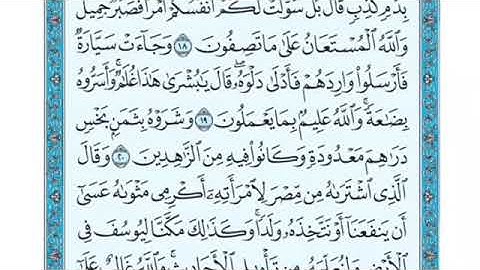 بِدَمٍ كَذِبٍ قَالَ بَلْ سَوَّلَتْ لَكُمْ أَنفُسُكُمْ أَمْرًا فَصَبْرٌ جَمِيلٌ
وَاللَّهُ الْمُسْتَعَانُ عَلَىٰ مَا تَصِفُونَ ١٨ وَجَاءَتْ سَيَّارَةٌ
فَأَرْسَلُوا وَارِدَهُمْ فَأَدْلَىٰ دَلْوَهُ ۖ قَالَ يَا بُشْرَىٰ هَٰذَا غُلَامٌ ۚ وَأَسَرُّوهُ
بِضَاعَةً ۚ وَاللَّهُ عَلِيمٌ بِمَا يَعْمَلُونَ ١٩ وَشَرَوْهُ بِثَمَنٍ بَخْسٍ
دَرَاهِمَ مَعْدُودَةٍ وَكَانُوا فِيهِ مِنَ الزَّاهِدِينَ ٢٠ وَقَالَ
الَّذِي اشْتَرَاهُ مِن مِّصْرَ لِامْرَأَتِهِ أَكْرِمِي مَثْوَاهُ عَسَىٰ
أَن يَنفَعَنَا أَوْ نَتَّخِذَهُ وَلَدًا ۚ وَكَذَٰلِكَ مَكَّنَّا لِيُوسُفَ فِي
الْأَرْضِ وَلِنُعَلِّمَهُ مِن تَأْوِيلِ الْأَحَادِيثِ ۚ وَاللَّهُ غَالِبٌ عَلَىٰ